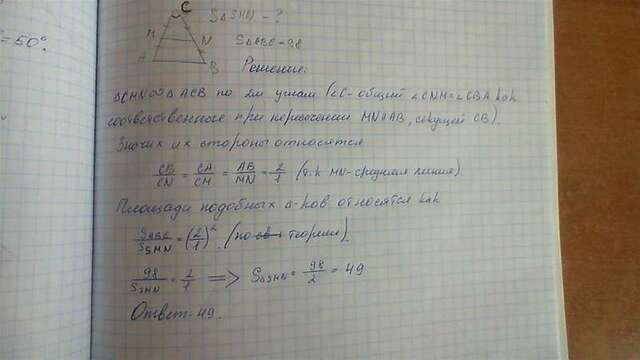 = 50°.
C
S△SMN - ?
M
N
S△ABC - 98
A
B
Решение:
△CMN∾△ACB по 2м углам (∠C - общий ∠CNM=∠CBA как
соответственные при пересечении MN∥AB, секущей CB).
Значит их стороны относятся
CB/CN = CA/CM = AB/MN = 2/1 (т.к MN - средняя линия)
Площади подобных △-ков относятся как
SABC/SSMN = (2/1)². (по теории).
98/SSMN = 2/1 ⟹ S△SMN = 98/2 = 49
Ответ: 49.